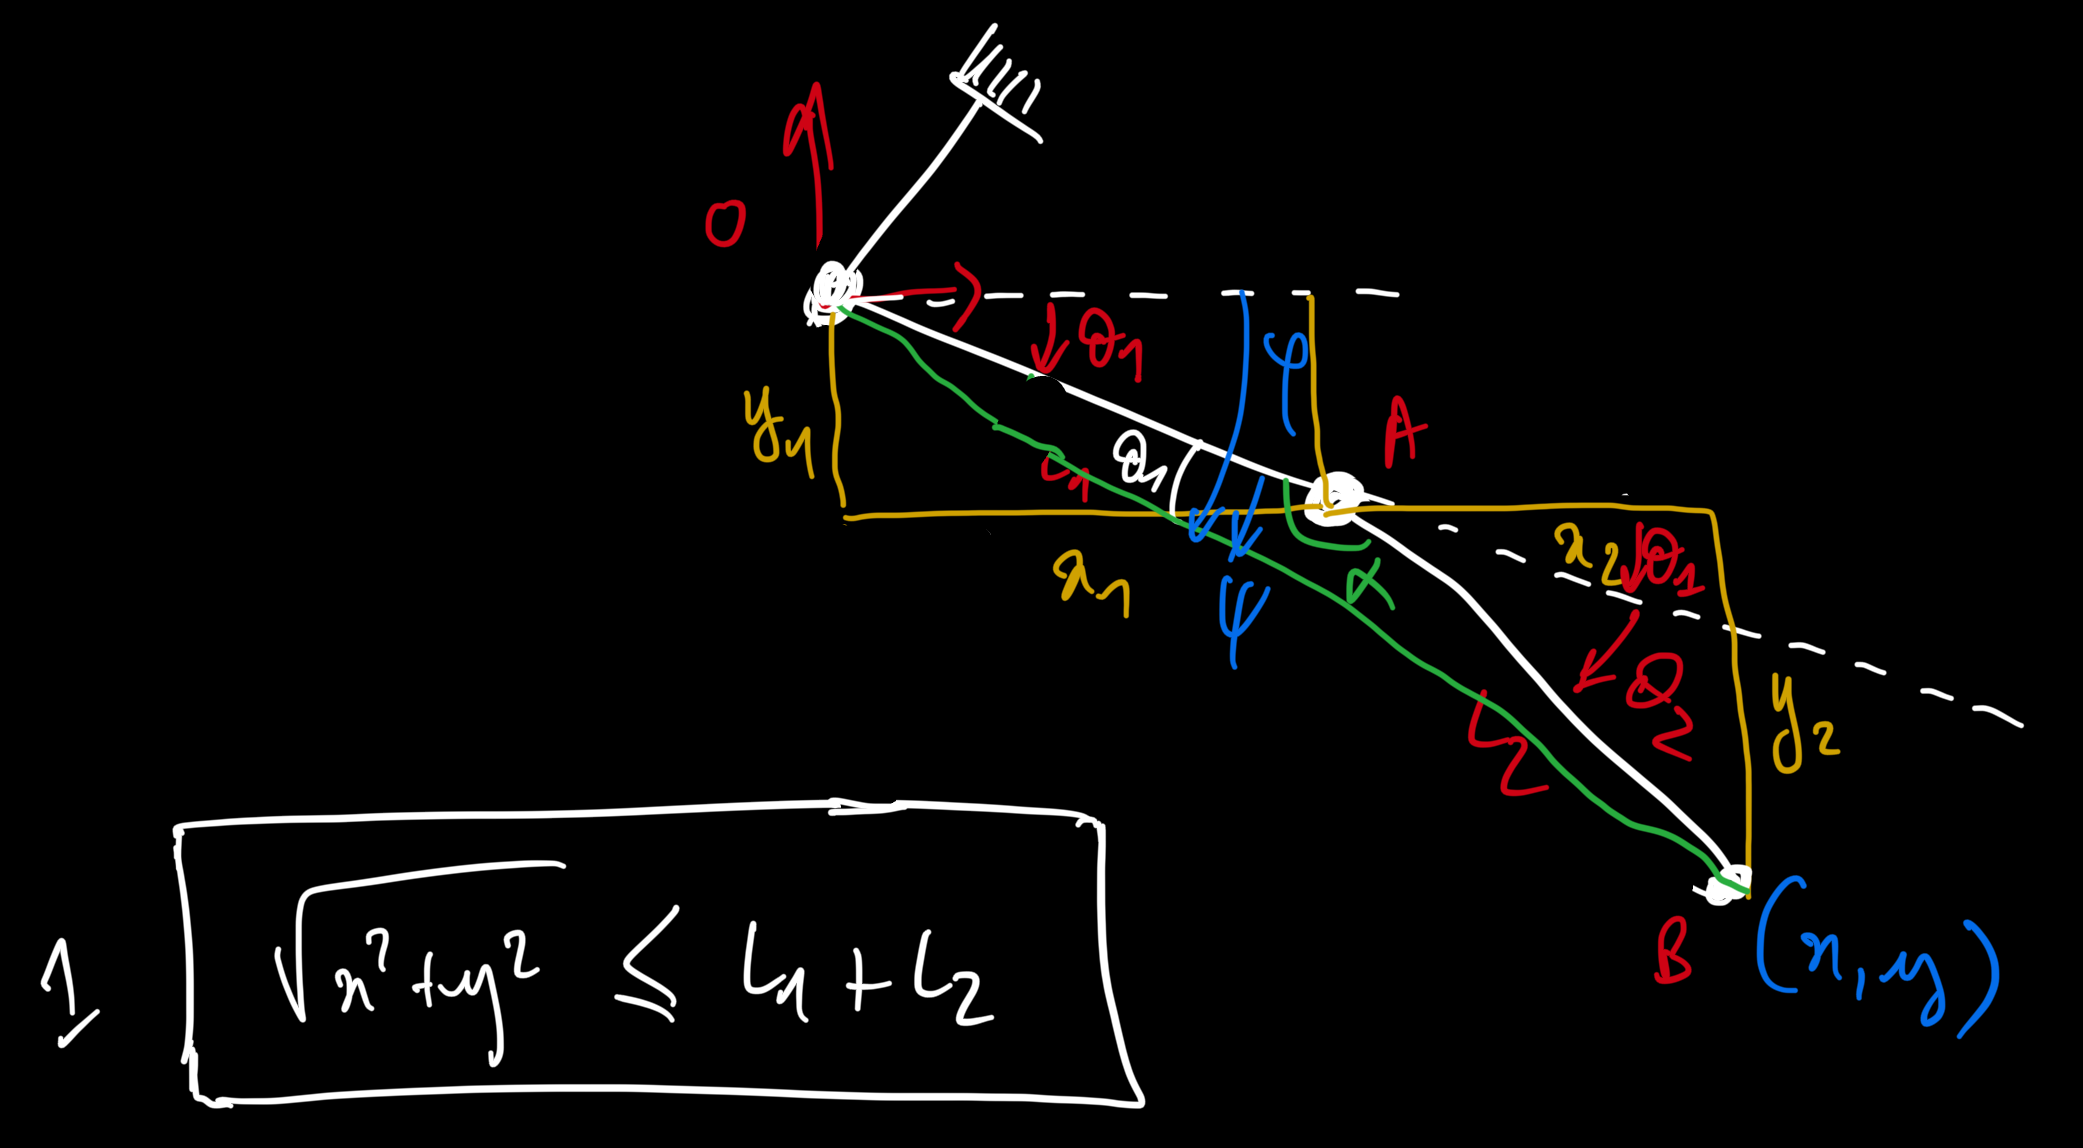 O
θ1
φ
A
y1
θ1
L1
x1
ψ
α
x2
θ1
θ2
y2
L2
B (x, y)
1
√x²+y² ≤ L1 + L2